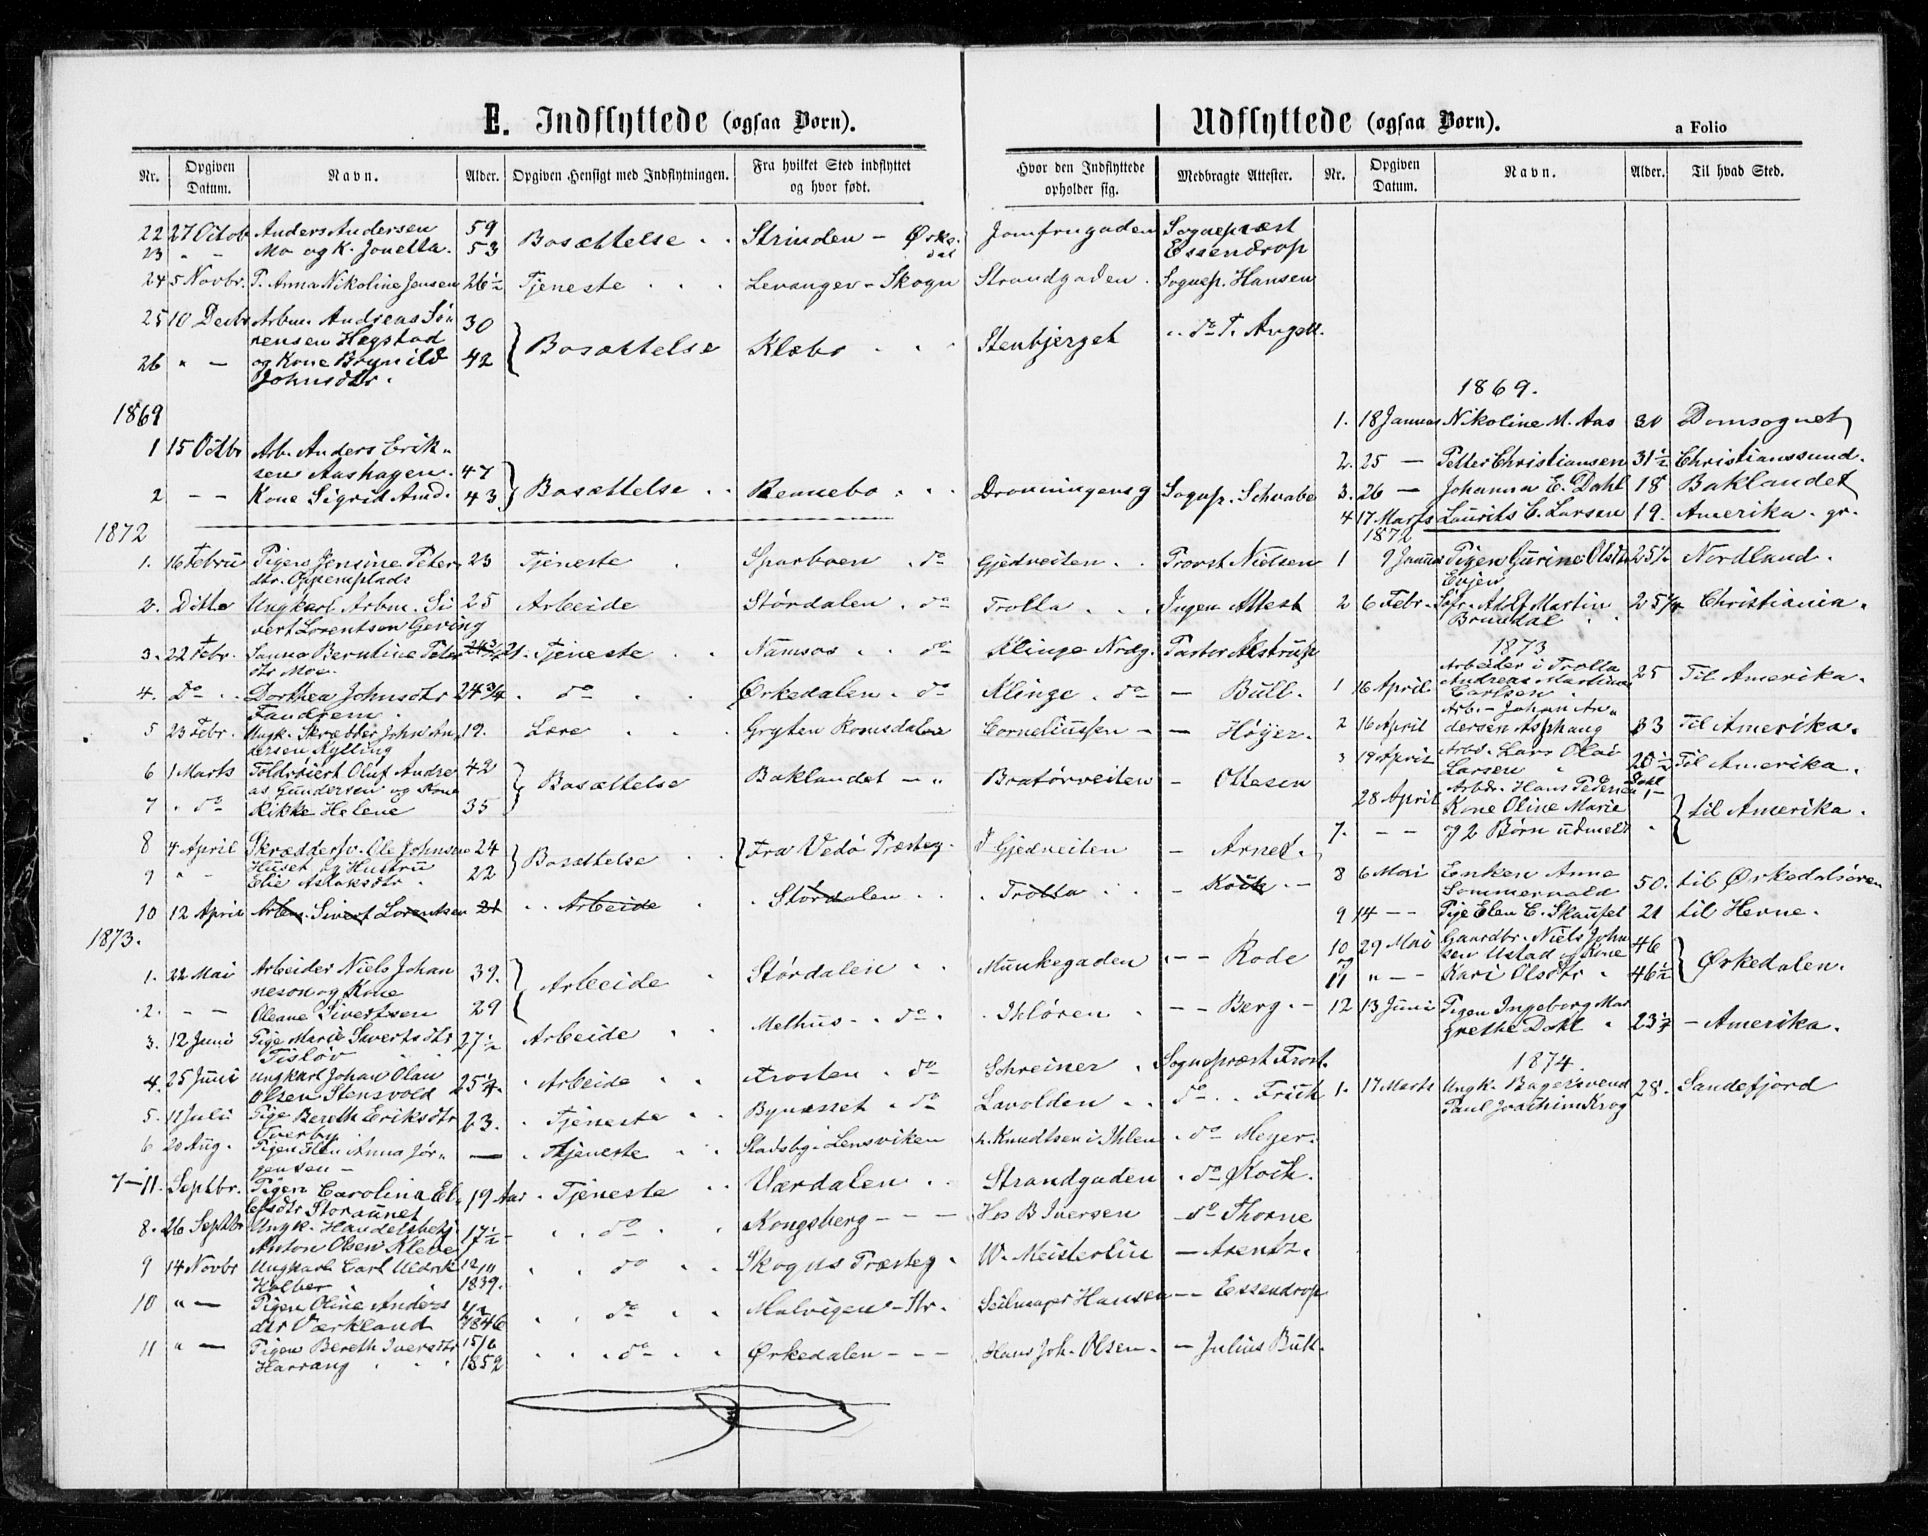 E. Indflyttede (ogsaa Børn).
Nr. Opgiven Datum. Navn. Alder. Opgiven Hensigt med Indflytningen. Fra hvilket Sted indflyttet og hvor født. Hvor den Indflyttede opholder sig. Medbragte Attester.
22 27 Octob Anders Andersen 59 Bosættelse Strinden - Ørke- Jomfrugaden Sognepræst
23 " - Mo og k. Jonetta. 53 dal Essendrop
24 5 Novbr. P. Anna Nikoline Jensen 26½ Tjeneste Levanger - Skogn Strandgaden Sognep. Hansen
25 10 Decbr Arbm. Andreas Sön 30
rensen Hegstad Bosættelse Klæbo Stenbjerget " do P.
26 " - og Kone Brynild 42
Johnsdtr.
1869
1 15 Octbr Arb. Anders Erik-
sen Aashagen. 47
2 - - Kone Sigrid Amd. 43 Bosættelse Rennebo Dronningensg Sognep. Schwabe
1872
1. 16 Febru Pigen Jensine Peter 23 Tjeneste Sparboen do Gjedveiten Provst Nielsen
dtr. Oppemplads
2. Ditto Ungkarl Arbm. Si 25 Arbeide Størdalen do Trolla Ingen Attest
vert Lorentsen Geving
3. 22 Febr. Sanna Berntine Peter 24¾ 21. Tjeneste Namsos do Klinge Ndg. Pastor Alstrup
dtr Moe.
4. Do Dorthea Johnsdtr 24¾ do Ørkedalen do Klinge do - Bull.
Fandrem
5 23 Febr. Ungk. Skrædder John An 19. Lære Gryten Romsdalen Corneliussen - - Høyer.
dersen Kylling
6 1 Marts Toldroiert Oluf Andre 42 Bosættelse Baklandet - " Bratørveiten - Ottesen
as Gundersen og Kone
7 " do Rikke Helene 35
8 4 April Skræddersv. Ole Johnsen 24 Bosættelse Fra Vedö Præsteg. I Gjedveiten - Arnet.
Huset og Hustru
9 " - Elie Aslaksdtr. 22
10 12 April Arbm. Sivert Lorentsen 21 Arbeide Stördalen Trolla - Koch -
1873.
1. 22 Mai Arbeider Niels Johan 39. Arbeide Størdalen Munkegaden - - Rode
neson og Kone
2. - - Oleane Sivertsen 29 Melhus - do Ihlören - - Berg. -
3. 12 Juni Pige Marie Sivertsdtr 27½ Arbeide
Tisløv
4. 25 Juni Ungkarl Johan Olau 25¼ Arbeide Frosten do Schreiner Sognepræst Frost.
Olsen Stensvold
5. 11 Juli Pige Bereth Eriksdtr 23. Tjeneste Bynesset do Lavolden do Frich
Tverby
6 20 Aug. Pigen Anna Jør- — Tjeneste Stadsby. Lensviken L. Knudtsen i Ihlen do Meyer.
gensen -
7-11. Septbr. Pigen Carolina El 19 Aar Tjeneste Værdalen Strandgaden do Koch.
lefsdtr Storaunet
8. 26 Septbr Ungk. Handelsbetj. 17½ do Kongsberg - - - Hos B Iversen - do Thorne
Anton Olsen Kleve
9 14 Novbr Ungkarl Carl Uldrik 12/11 do Skogns Præsteg. W. Meisterlin - Arentz.
Holber 1839.
10 " - Pigen Oline Anders do Malvigen - Str. Seilmager Hansen - - Essendrop
dtr Værkland 1846
11 " - Pigen Bereth Iversdtr 15/6 do Ørkedalen - - - Hans Joh. Olsen. - Julius Bull.
Harrang 1852
Udflyttede (ogsaa Børn).
a Folio
Nr. Opgiven Datum. Navn. Alder. Til hvad Sted.
1869.
1. 18 Januar Nikoline M. Aas 30 Domsognet
2. 25 - Petter Christiansen 31½ Christianssund.
3. 26 - Johanna E. Dahl 18 Baklandet
4 17 Marts Laurits C. Larsen 19. Amerika.
1872
1 9 Januar Pigen Gurine Olsdtr 25½ Nordland.
Evjen
2 6 Febr. Adolf Martin 25¼ Christiania.
Brundal
1873
1 16 April Arbeider i Trolla 25 Til Amerika.
Andreas Martinus
Carlsen
2 16 April Arb. Johan An- 33 Til Amerika.
dersen Asphaug
3 19 April Arbd. Lars Olai 20½ Til Amerika.
Larsen
28 April Arbdr. Hans Pedersen Dahl, til Amerika.
Kone Oline Marie
7. - - og 2 Børn udmeldt
8 6 Mai Enken Anne 50. til Ørkedalsøren
Sommervold
9 14 - - Pige Elen C. Skaufel 21 til Hevne.
10 29 Mai Gaardbr. Niels John 46 Ørkedalen.
og sen Ustad og Kone
11 " - - Kari Olsdtr 46½
12 13 Juni Pigen Ingeborg Mar 23¼ - Amerika.
grethe Dahl
1874.
1. 17 Marts Ungk. Bagersvend 28. Sandefjord
Paul Joachim Krog